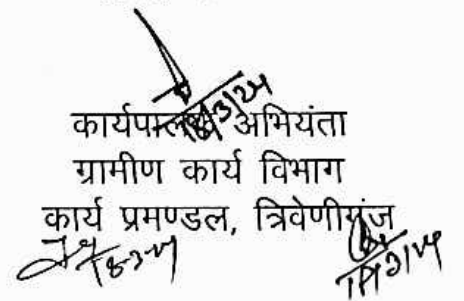 कार्यपालक अभियंता
ग्रामीण कार्य विभाग
कार्य प्रमण्डल, त्रिवेणीगंज
18-3-24